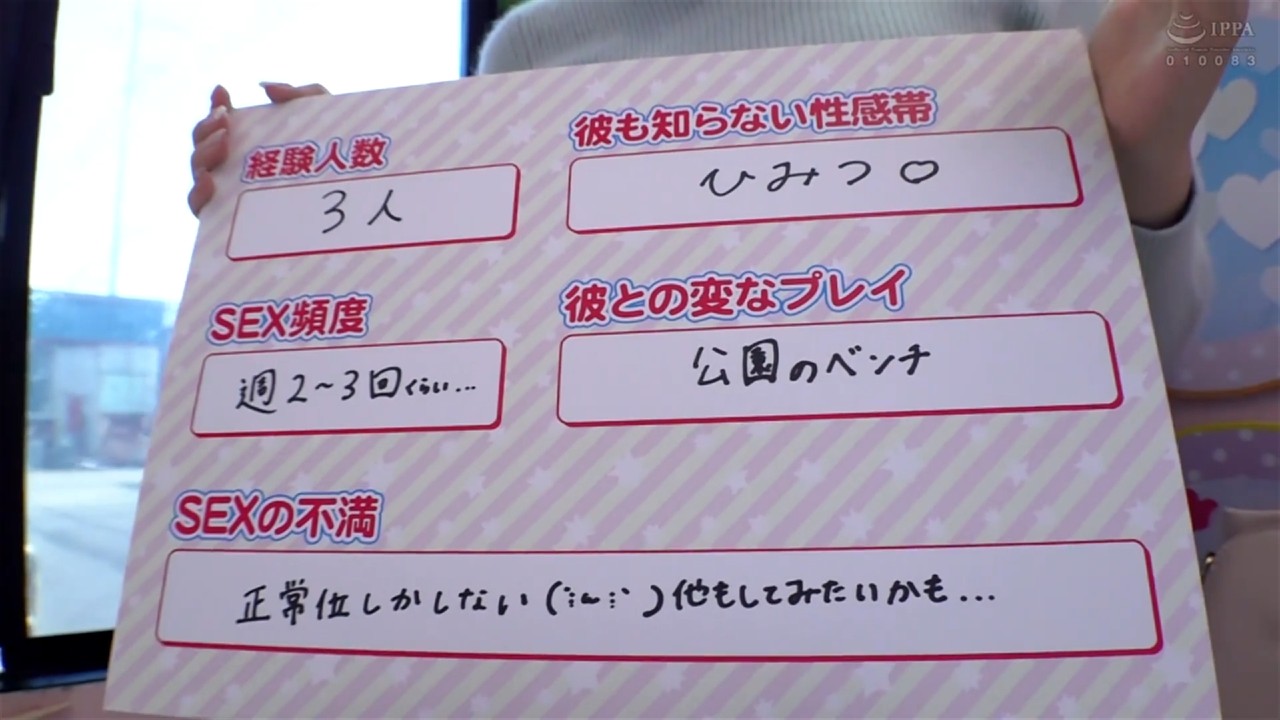 IPPA
010083
経験人数
3人
彼も知らない性感帯
ひみつ♡
SEX頻度
週2~3回くらい...
彼との変なプレイ
公園のベンチ
SEXの不満
正常位しかしない(´;ω;`)他もしてみたいかも...